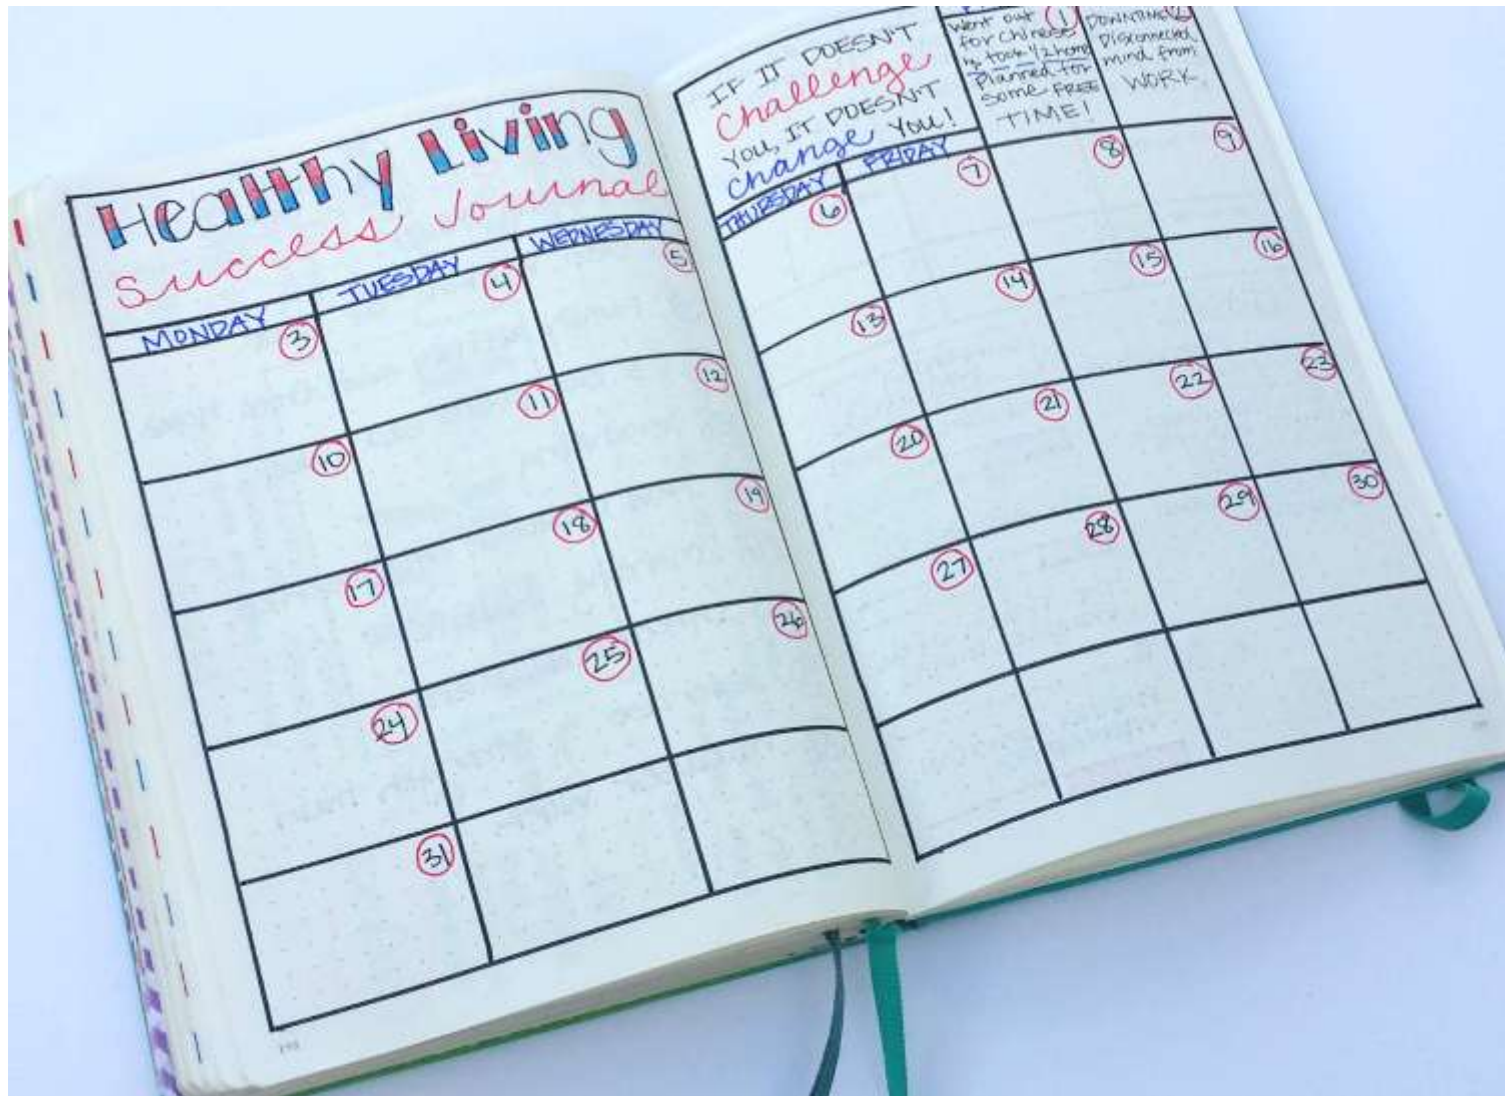 Healthy Living
Success Journal
MONDAY
TUESDAY
WEDNESDAY
3
4
5
10
11
12
17
18
19
24
25
26
31
IF IT DOESN'T
challenge
YOU, IT DOESN'T
change YOU!
Went out 1
for Chinese
took 1/2 home
Planned for
some FREE
TIME!
DOWNTIME 2
Disconnected
mind from
WORK.
THURSDAY
FRIDAY
6
7
8
9
13
14
15
16
20
21
22
23
27
28
29
30